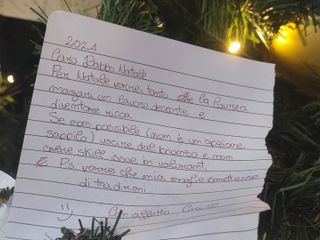 2021
Caro Babbo Natale
Per Natale vorrei tanto la laurea
magari un lavoro decente e
diventare ricca
Se non possibile (non è un opzione
sappilo) uscire dal bromba e non
avere skill issue
P.s vorrei che mia moglie smettesse
di tradirmi
Con affetto